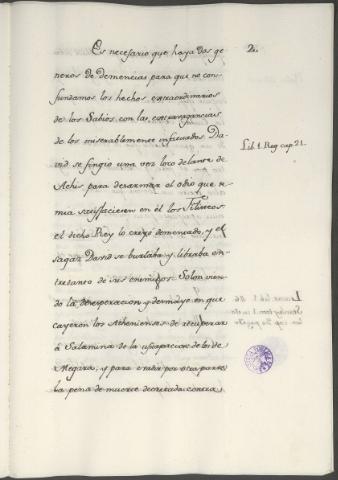 2.
Es necesario que haya dos ge
neros de demencias para que no con
fundamos los hechos extraordinarios
de los Sabios con las extravagancias
de los miserablemente infatuados. Da
vid se fingio una vez loco delante de
Achis para desarmar al odio que te
mia satisfaciesen en él los Filisteos
el dicho Rey lo creyó demenzado, y el
sagaz David se burlaba y libraba en-
tretanto de sus enemigos. Solon vien
do la desesperacion y desmayo en que
cayeron los Athenienses de recuperar
á Salamina de la usurpacion de los de
Megara, y para evitar por otra parte
la pena de muerte decretada contra
Lib. 1. Reg. cap. 21.